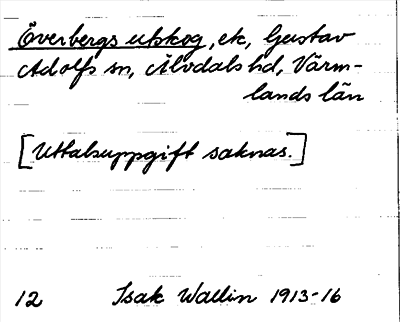 Överbergs utskog, ek, Gustav
Adolfs sn, Älvdals hd, Värm-
lands län
[Uttalsuppgift saknas.]
12 Isak Wallin 1913-16